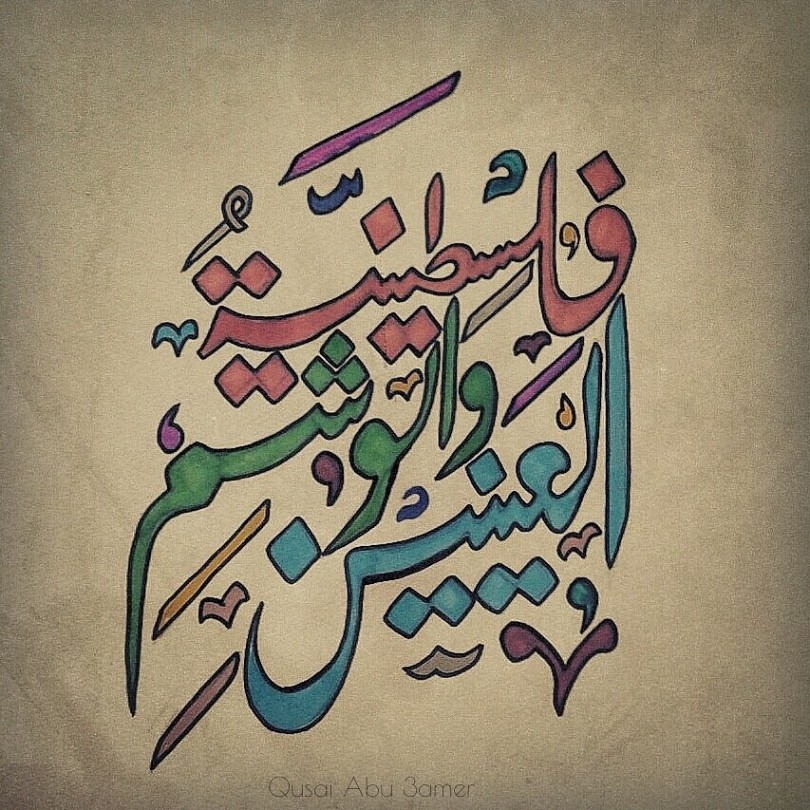 فلسطينية
العينين
والوشم
Qusai Abu 3amer